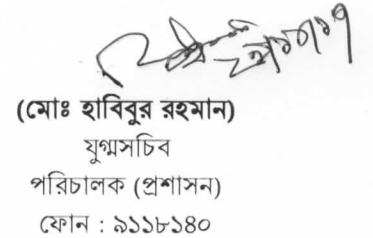 (মোঃ হাবিবুর রহমান)
যুগ্মসচিব
পরিচালক (প্রশাসন)
ফোন : ৯১১৮১৪০